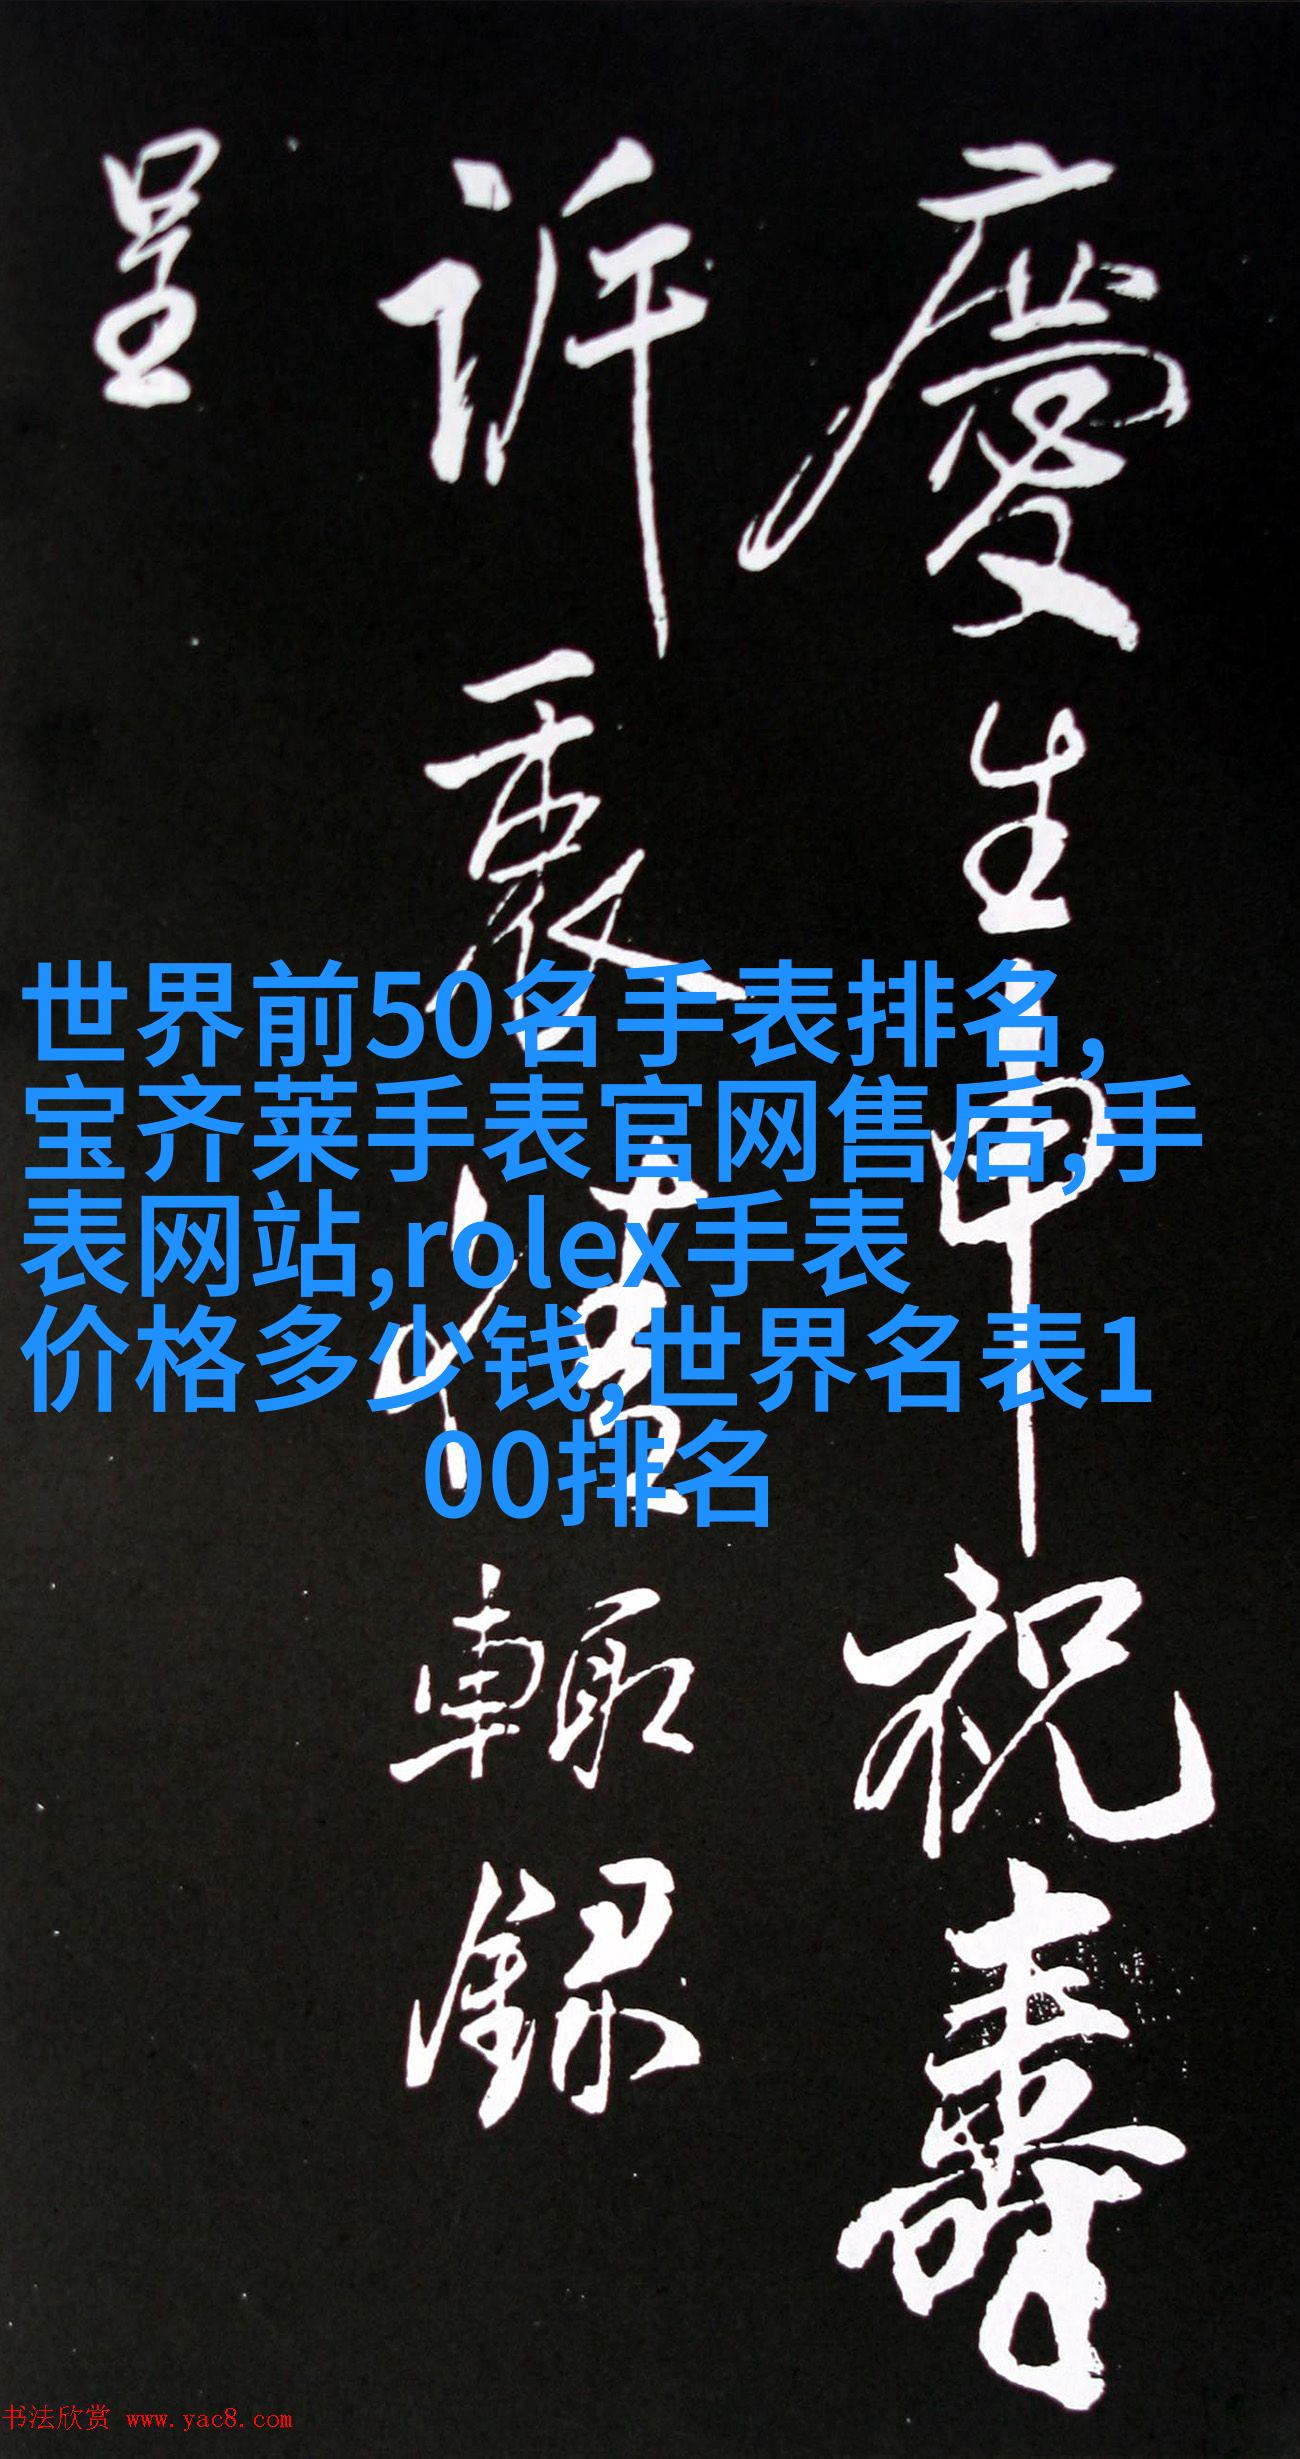 慶生申祝壽
訢衷慬輒録
呈
世界前50名手表排名,
宝齐莱手表官网售后,手
表网站,rolex手表
价格多少钱,世界名表1
00排名
书法欣赏 www.yac8.com